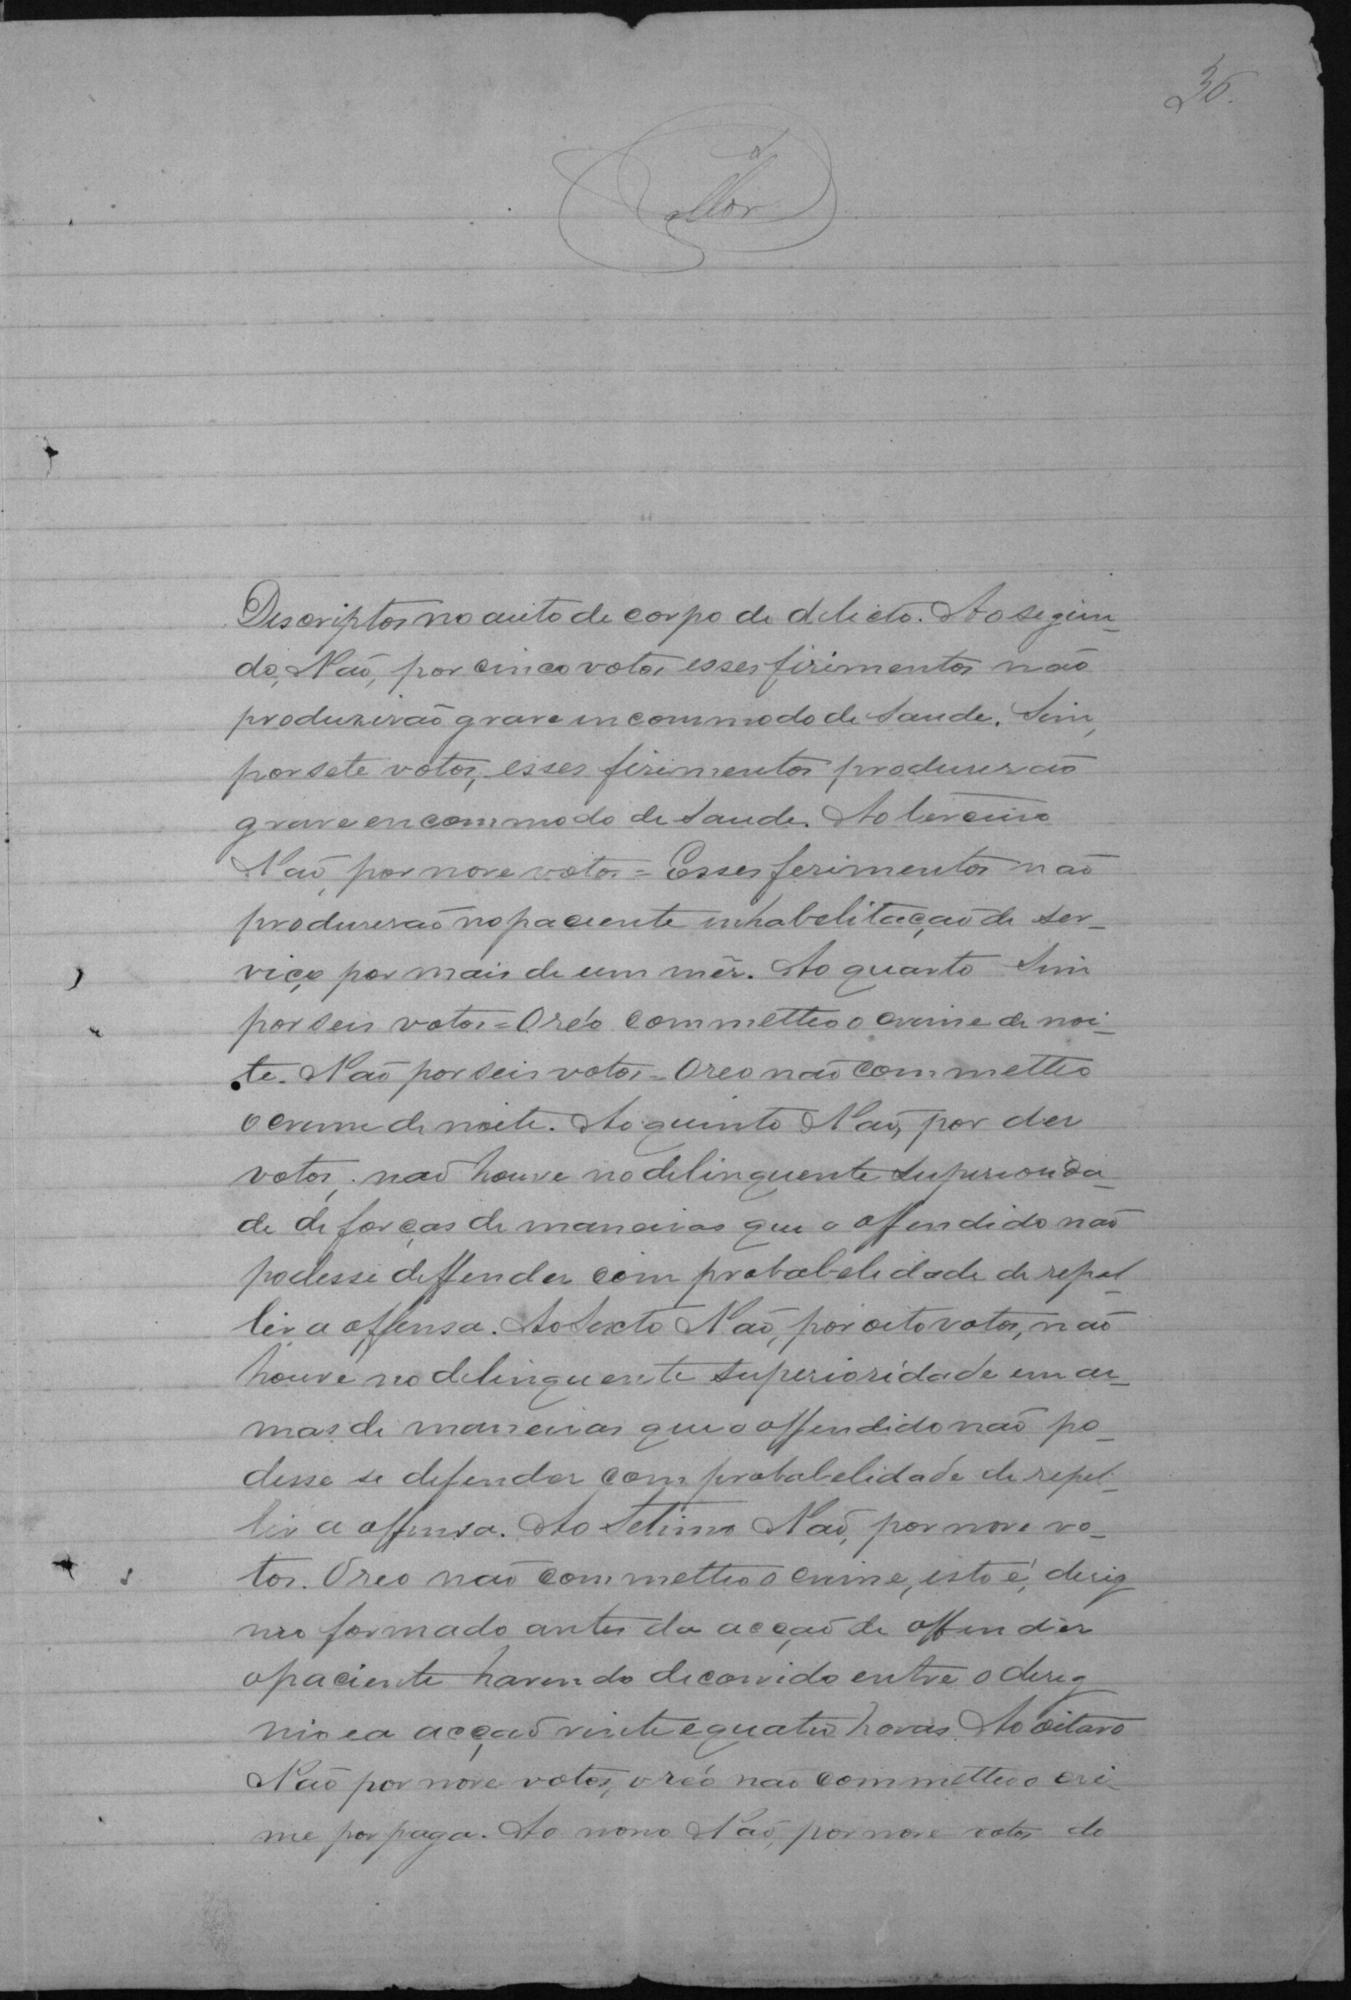 36.
Descriptos no auto de corpo de delicto. Ao segun_
do, Não, por cinco votos esses firimentos não
produzirão grave incommodo de saude. Sim,
por sete votos, esses firimentos produzirão
grave encommodo de saude. Ao terceiro
Não, por nove votos = Esses ferimentos não
produzerão no paciente inhabelitação de ser_
viço por mais de um mês. Ao quarto Sim
por seis votos = O réo commetteo o crime de noi_
te. Não por seis votos = O reo não commetteo
o crime de noite. Ao quinto Não, por dez
votos, não houve no delinquente superiorida_
de de forças de maneiras que o offendido não
podesse deffender com probabelidade de repel_
lir a offensa. Ao Sexto Não, por oito votos, não
houve no delinquente superioridade em ar_
mas de maneiras que o offendido não po_
desse se defender com probabelidade de repel_
lir a offensa. Ao Setimo Não, por nove vo_
tos. O reo não commetteo o crime, isto é, desig
nio formado antes da acção de offender
o paciente havendo decorrido entre o desig
nio e a acção vinte e quatro horas. Ao oitavo
Não por nove votos, o réo não commetteo o cri_
me por paga. Ao nono Não, por nove votos do